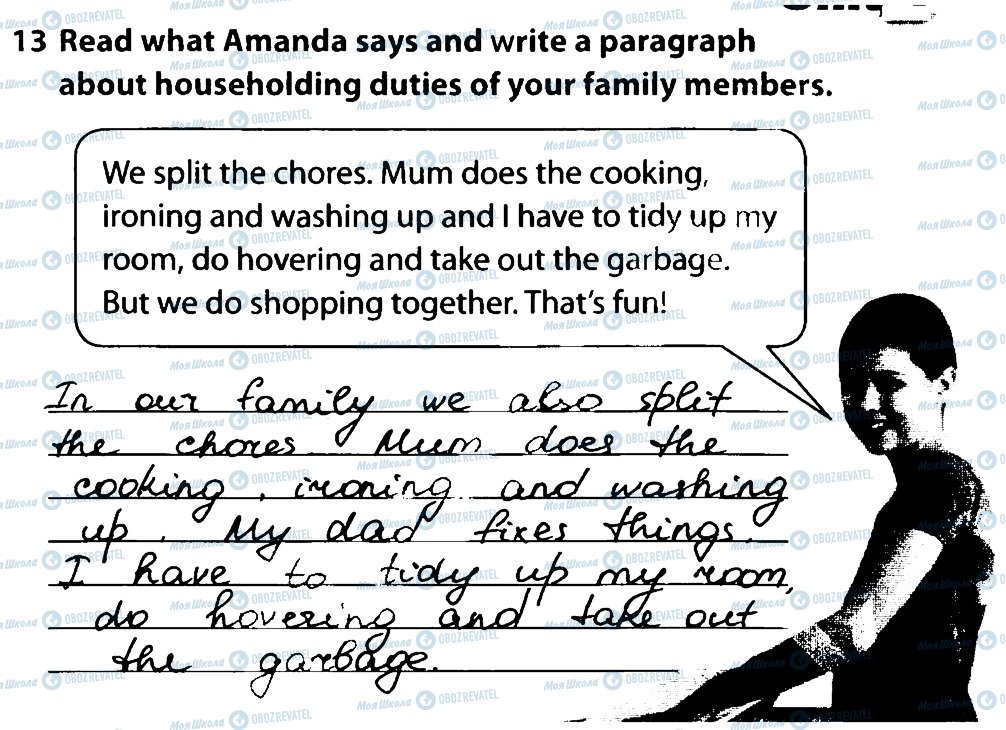 13 Read what Amanda says and write a paragraph
about householding duties of your family members.
We split the chores. Mum does the cooking,
ironing and washing up and I have to tidy up my
room, do hovering and take out the garbage.
But we do shopping together. That's fun!
In our family we also split
the chores. Mum does the
cooking, ironing and washing
up. My dad fixes things.
I have to tidy up my room,
do hovering and take out
the garbage.
МояШкола OBOZREVATEL